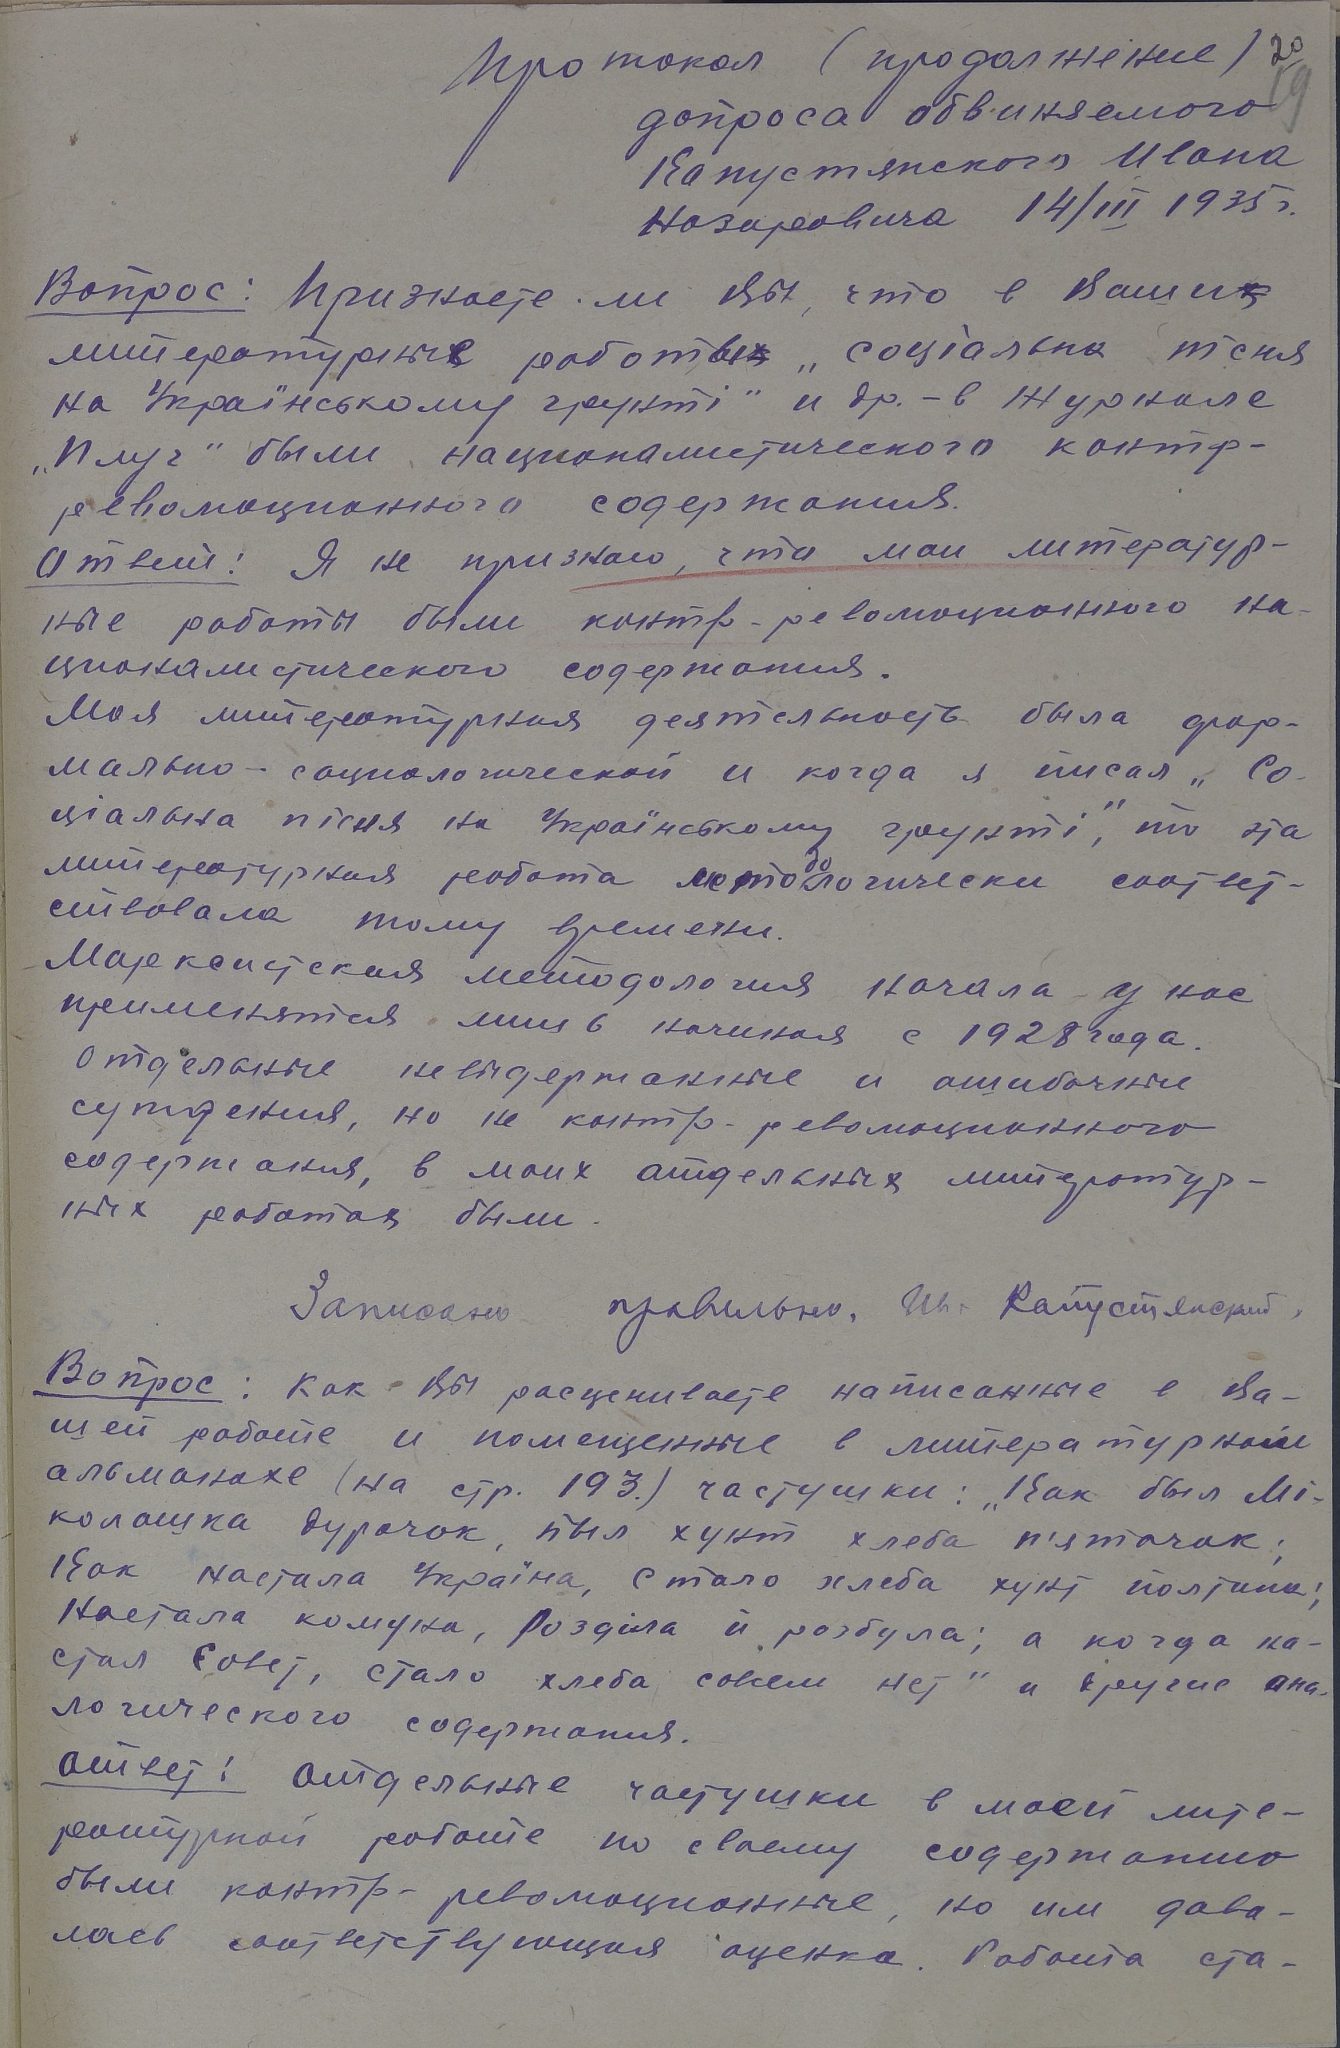 Протокол (продолжение) 20
19
допроса обвиняемого
Капустянского Ивана
Назаровича 14/III 1935 г.
Вопрос: Признаете ли Вы, что в Ваших
литературных работах „соціальна пісня
на Українському грунті" и др. - в журнале
„Плуг" были националистического контр-
революционного содержания.
Ответ: Я не признаю, что мои литератур-
ные работы были контр-революционного на-
ционалистического содержания.
Моя литературная деятельность была фор-
мально-социологической и когда я писал „Со-
ціальна пісня на Українському грунті", то эта
литературная работа методологически соответ-
ствовала тому времени.
Марксистская методология начала у нас
применятся лишь начиная с 1928 года.
Отдельные невыдержанные и ошибочные
суждения, но не контр-революционного
содержания, в моих отдельных литератур-
ных работах были.
Записано правильно. Ив. Капустянский.
Вопрос: Как Вы расцениваете написанные в Ва-
шей работе и помещенные в литературном
альманахе (на стр. 193.) частушки: „Как был Мі-
колашка дурачок, был хунт хлеба п'ятачок;
Как настала Україна, стало хлеба хунт полтина;
Настала комуна, Розділа й розбула; а когда на-
стал Совет, стало хлеба совсем нет" и другие ана-
логического содержания.
Ответ: Отдельные частушки в моей лите-
ратурной работе по своему содержанию
были контр-революционные, но им дава-
лась соответствующая оценка. Работа ста-